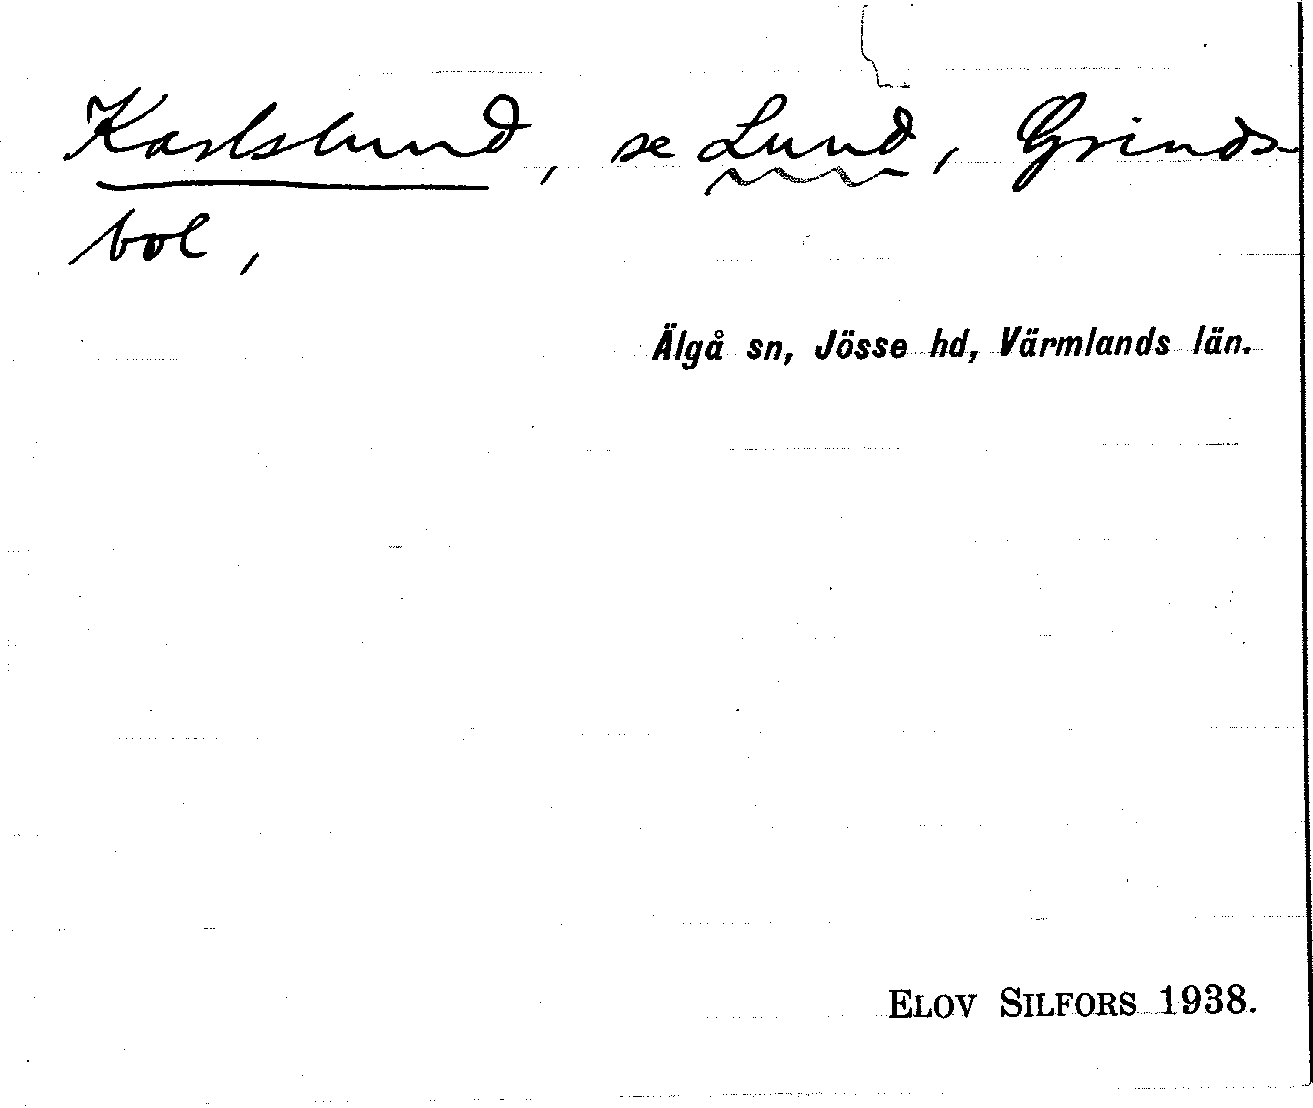 Karlslund, se Lund, Grinds-
bol,
Älgå sn, Jösse hd, Värmlands län.
ELOV SILFORS 1938.